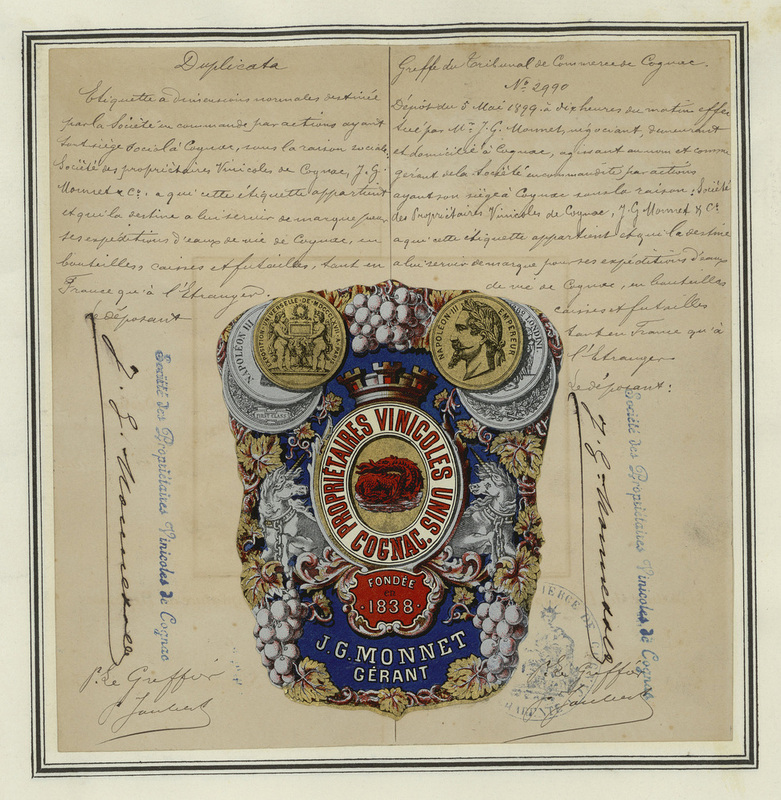 Duplicata
Étiquette à dimensions normales destinée
par la Société en commande par actions ayant
son siège social à Cognac, sous la raison sociale:
Société des propriétaires Vinicoles de Cognac, J. G.
Monnet & Cie. a qui cette étiquette appartient
et qui la destine a lui servir de marque pour
ses expéditions d'eaux de vie de Cognac, en
bouteilles, caisses et futailles, tant en
France qu'à l'Etranger
Le déposant
J. G. Monnet & Cie
Société des Propriétaires Vinicoles de Cognac
P. Le Greffier
Greffe du Tribunal de Commerce de Cognac.
No 2990
Dépôt du 5 Mai 1899 à dix heures du matin effec
tué par Mr J. G. Monnet, négociant, demeurant
et domicilié à Cognac, agissant au nom et comme
gérant de la Société en commandite par actions
ayant son siège à Cognac sous la raison: Société
des Propriétaires Vinicoles de Cognac, J. G Monnet & Cie
a qui cette étiquette appartient et qui la destine
a lui servir de marque pour ses expéditions d'eaux
de vie de Cognac, en bouteilles
caisses et futailles
tant en France qu'à
l'Etranger
Le déposant:
J. G. Monnet & Cie
Société des Propriétaires Vinicoles de Cognac
P. Le Greffier
NAPOLÉON III
EXPOSITION UNIVERSELLE DE
FIRST CLASS
NAPOLÉON III EMPEREUR
LONDINI
PROPRIÉTAIRES VINICOLES UNIS
COGNAC.
FONDÉE
en
1838
J. G. MONNET
GÉRANT